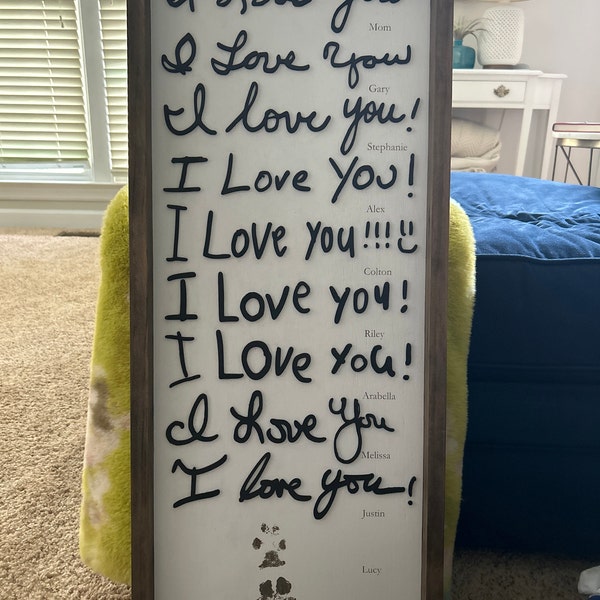 I Love You
Mom
I Love You
Gary
I love you!
Stephanie
I Love You!
Alex
I Love you!!!
Colton
I Love you!
Riley
I LOVE you!
Arabella
I Love You
Melissa
I love you!
Justin
Lucy